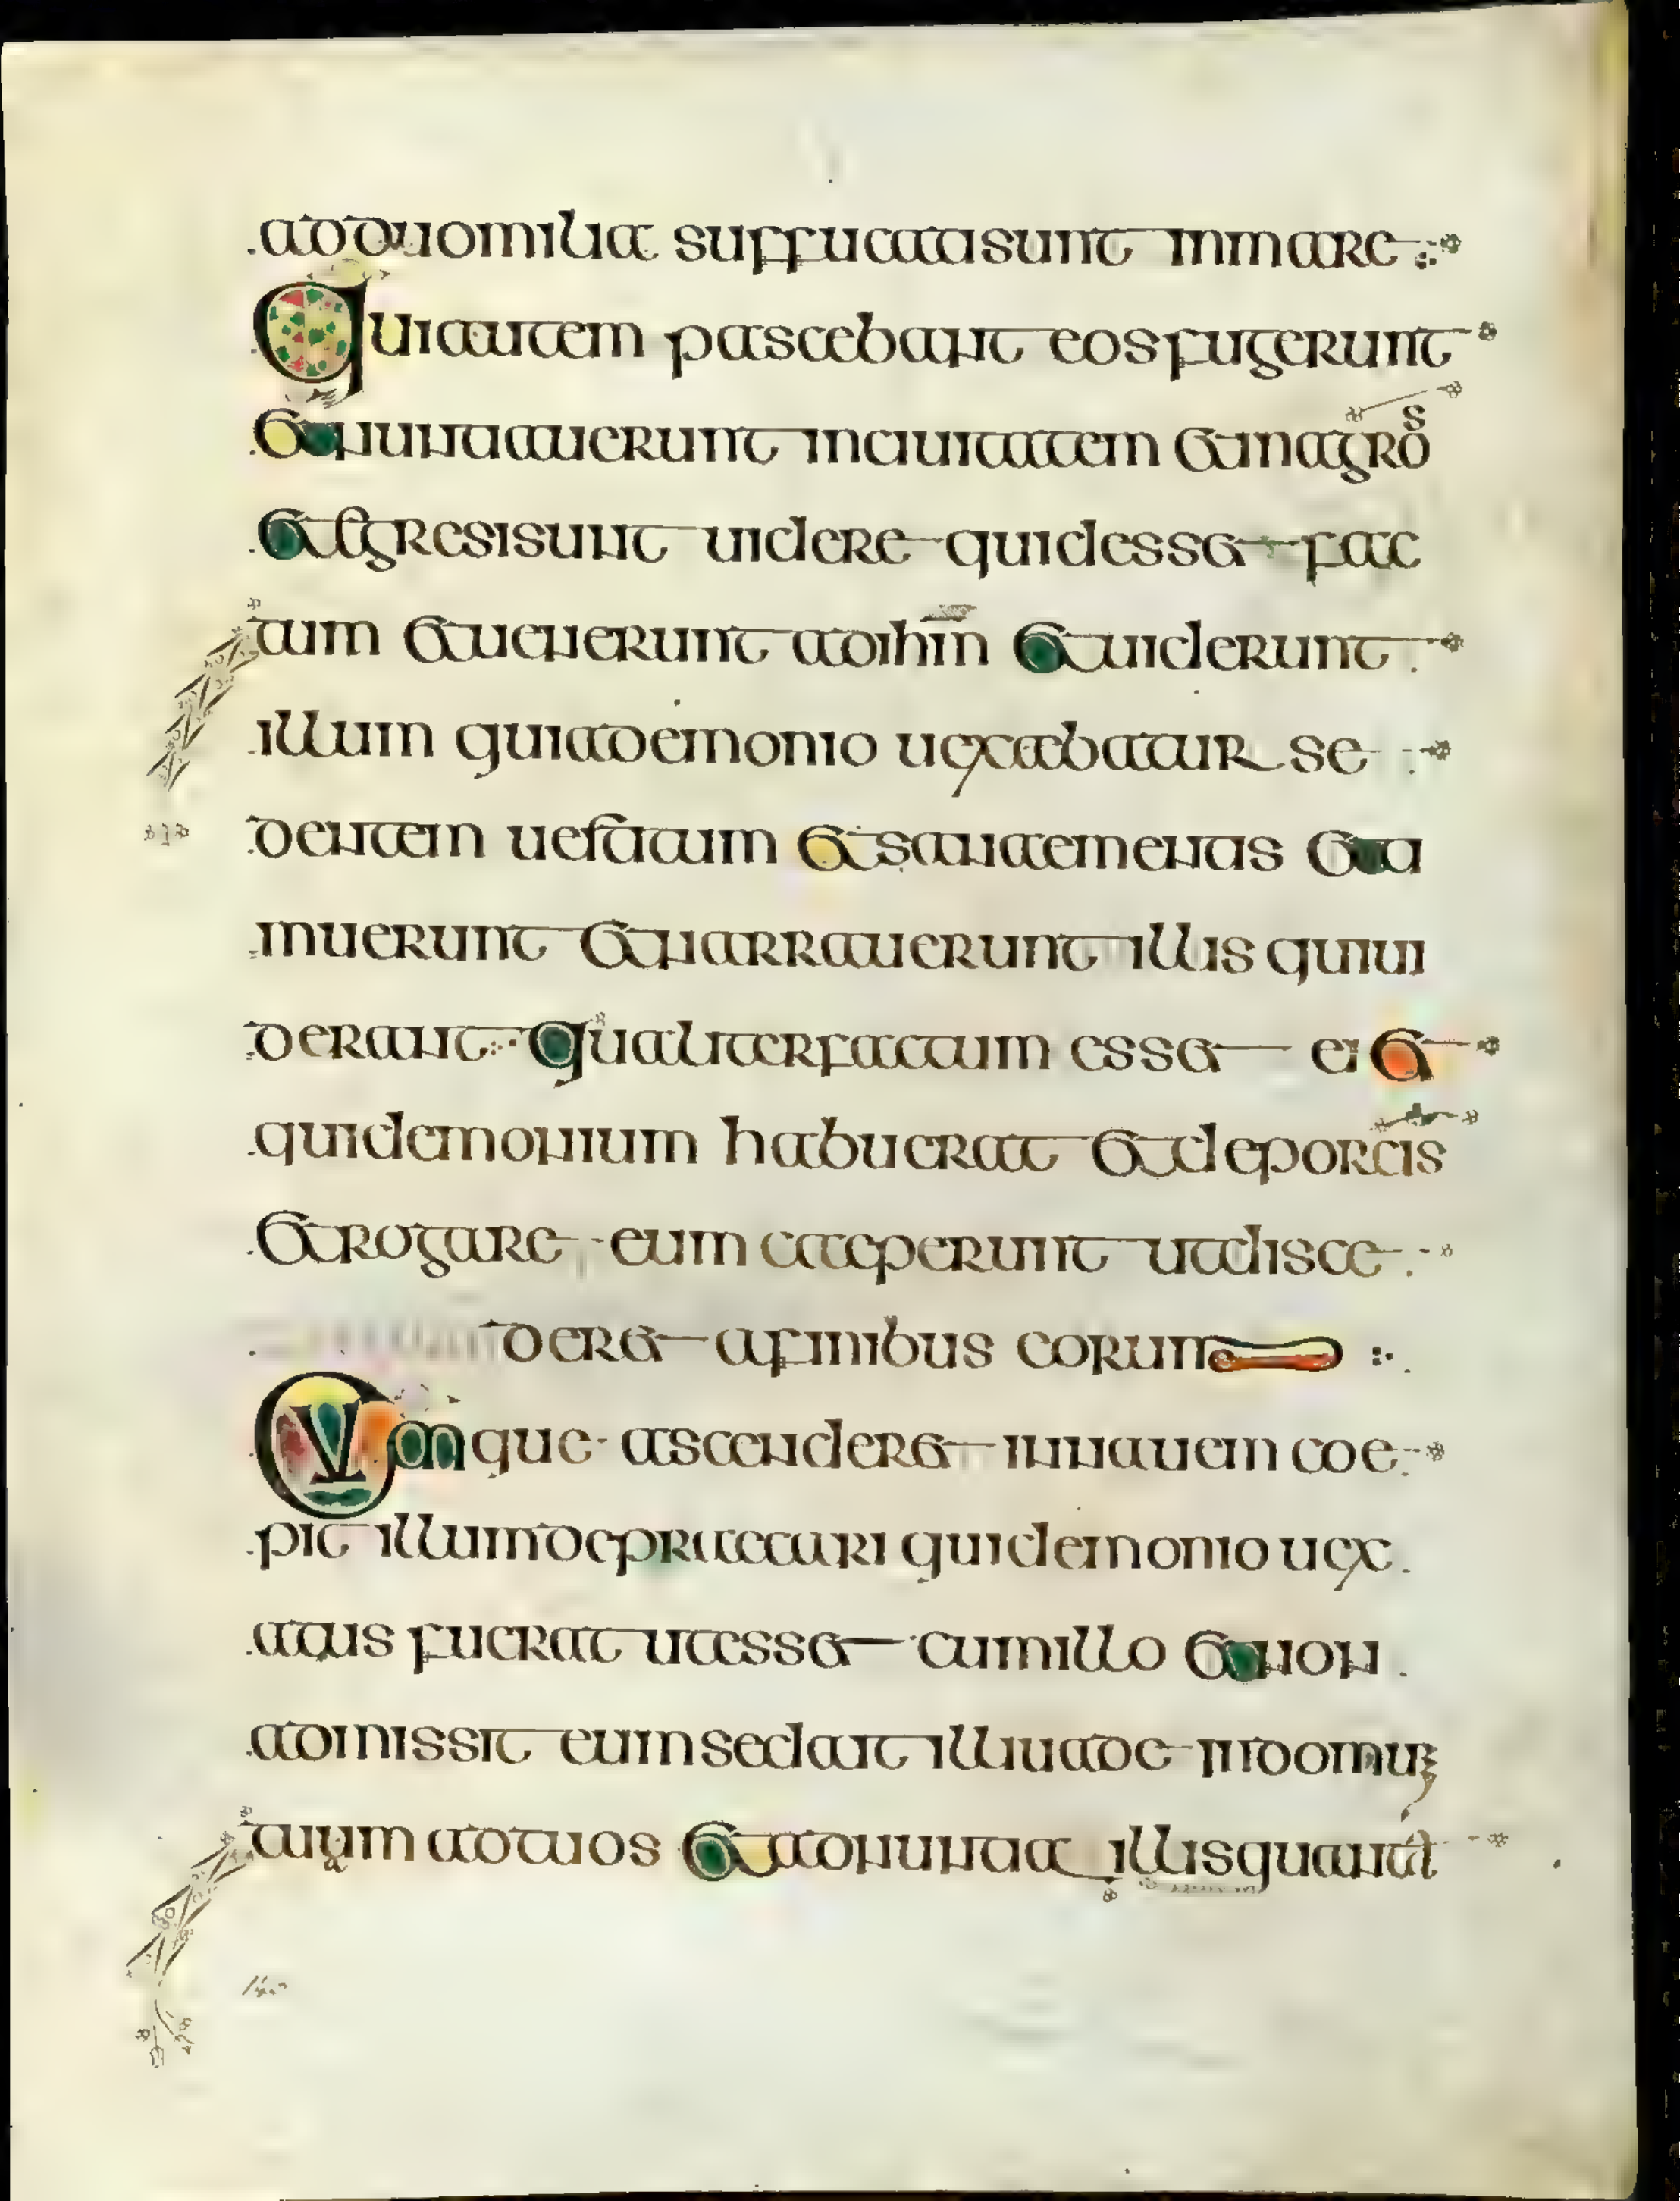 adduomilia suffucatisunt inmare
Quiautem pascebant eosfugerunt
etnuntiauerunt inciuitatem etinagros
etegresisunt uidere quidesset fac
tum etuenerunt adihm etuiderunt
illum quiademonio uexabatur se
dentem uestitum etsanaementis etti
muerunt etnarrauerunt illis quiui
derant qualiterfactum esset ei et
quidemonium habuerat etdeporcis
etrogare eum coeperunt utdisce
deret afinibus eorum
Cumque ascenderet innauem coe
pit illumdepraecari quidemonio uex
atus fuerat utesset cumillo etnon
admissit eumsedait illiuade indomum
tuum adtuos etadnuntia illisquanta